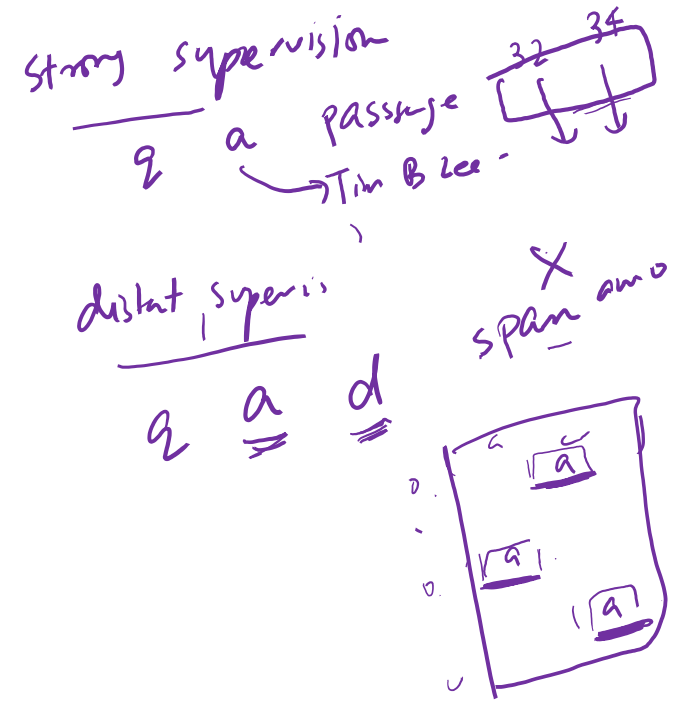 strong supervision
32 34
q a passage
Tim B Lee
distat supervis
X
span anno
q a d
a
a
a